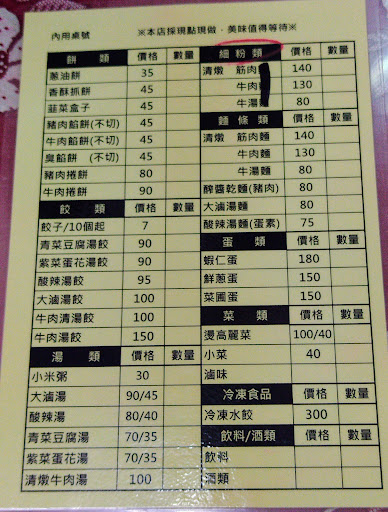 內用桌號 ※本店採現點現做，美味值得等待※
餅 類 價格 數量
蔥油餅 35
香酥抓餅 45
韮菜盒子 45
豬肉餡餅(不切) 45
牛肉餡餅(不切) 45
臭餡餅 (不切) 45
豬肉捲餅 80
牛肉捲餅 90
餃 類 價格 數量
餃子/10個起 7
青菜豆腐湯餃 90
紫菜蛋花湯餃 90
酸辣湯餃 95
大滷湯餃 100
牛肉清湯餃 100
牛肉湯餃 150
湯 類 價格 數量
小米粥 30
大滷湯 90/45
酸辣湯 80/40
青菜豆腐湯 70/35
紫菜蛋花湯 70/35
清燉牛肉湯 100
細 粉 類 價格 數量
清燉 筋肉 140
牛肉 130
牛湯 80
麵 條 類 價格 數量
清燉 筋肉麵 140
牛肉麵 130
牛湯麵 80
醡醬乾麵(豬肉) 80
大滷湯麵 80
酸辣湯麵(蛋素) 75
蛋 類 價格 數量
蝦仁蛋 180
鮮蔥蛋 150
菜圃蛋 150
菜 類 價格 數量
燙高麗菜 100/40
小菜 40
滷味
冷凍食品 價格 數量
冷凍水餃 300
飲料/酒類 價格 數量
飲料
酒類